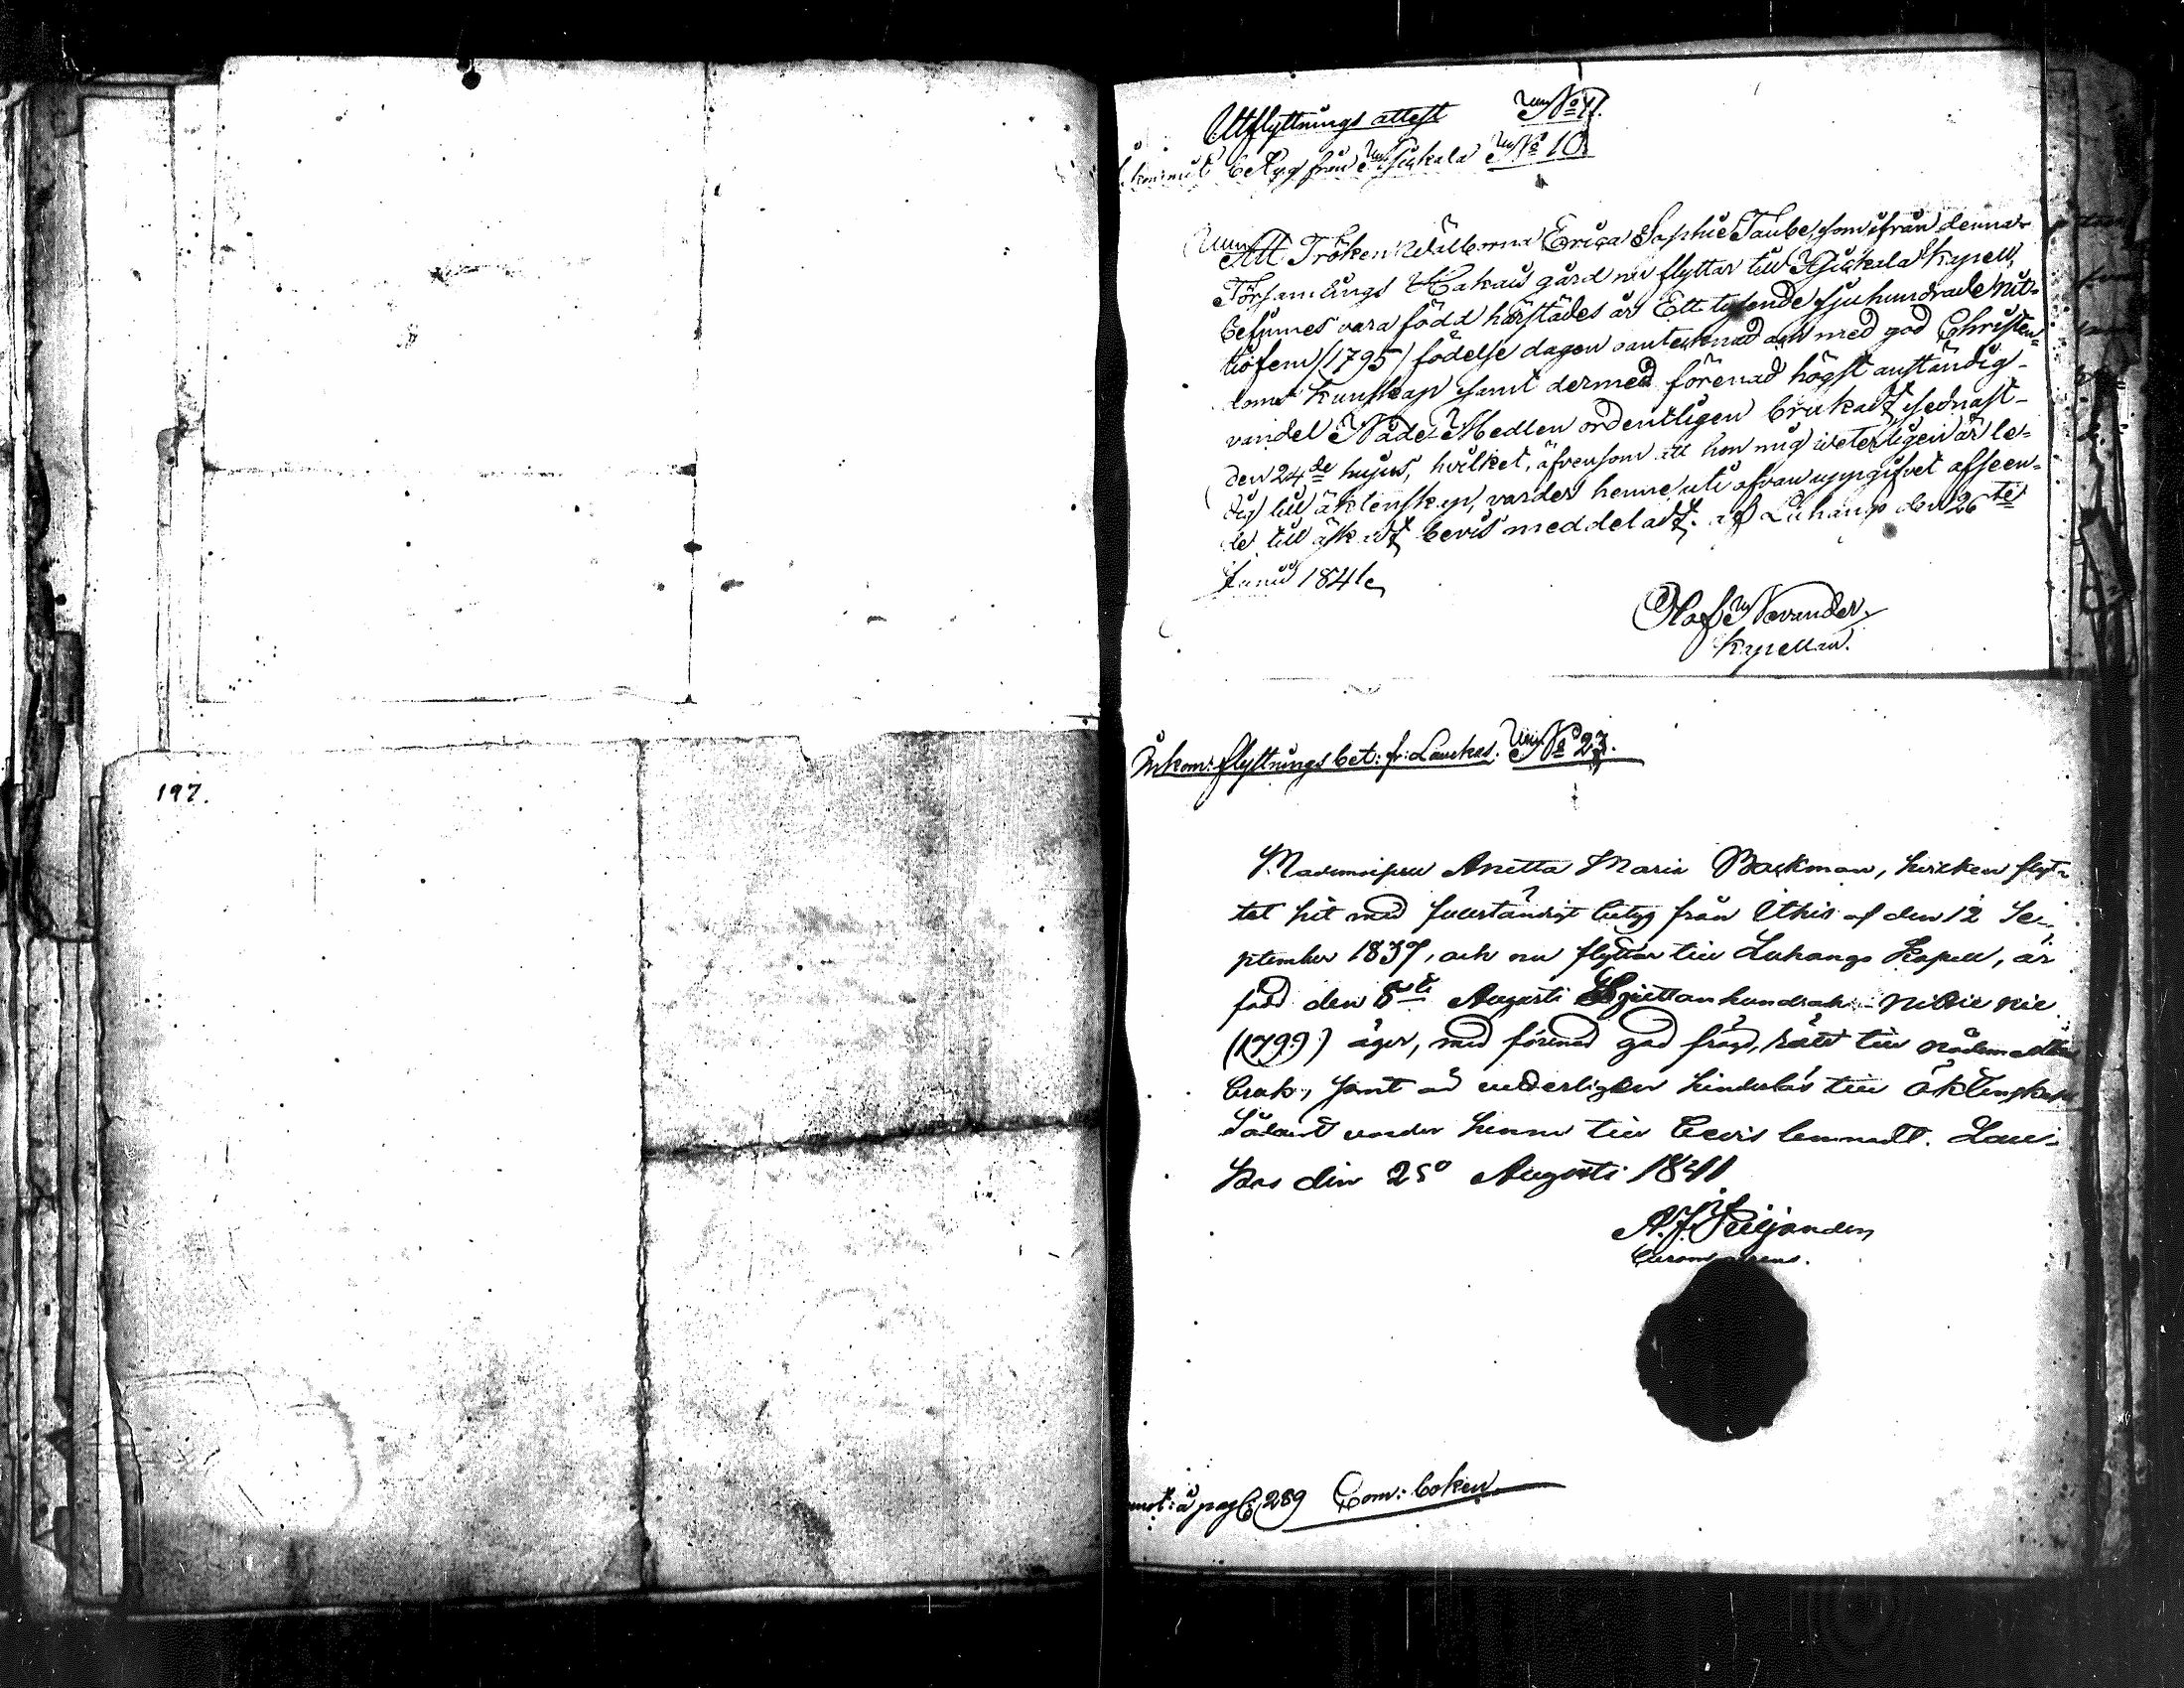 Utflyttnings attest N:o 7.
betyg från Asikkala N:o 10
Att Fröken Wälborna Erica Sophie Taube, som ifrån denna
Församlings gård nu flyttar till Asikkala Kapell,
befinnes vara född härstädes år Ett tusende sjuhundrade nit-
tiofem (1795) födelse dagen oantecknad och med god Christen-
doms kunskap samt dermed förenad högst anständig
vandel Nåde-Medlen ordentligen brukat, sednast
den 24de hujus, hvilket, äfvensom att hon mig veterligen är le-
dig till äktenskap, varder henne uti ofvan uppgifvet afseen-
de till äskadt bevis meddeladt. af Luhango den 26te
Junii 1841
Olof Nevander
Kapellan.
197.
Inkom: flyttningsbet: fr: Laukas. N:o 23.
Mademoisell Anetta Maria Backman, hvilken flyt-
tat hit med fullständigt betyg från Ithis af den 12 Se-
ptember 1837, och nu flyttar till Luhango Kapell, är
född den 8de Augusti Sjuttonhundrade nittio nie
(1799) äger, med förenad god frägd, rätt till nådemedlens
bruk, samt är hinderlös till äktenskap
Sådant varder henne till bevis lemnadt. Lau-
kas den 25 Augusti 1841
A. J. Piljander
på pag: 289 Com: boken.